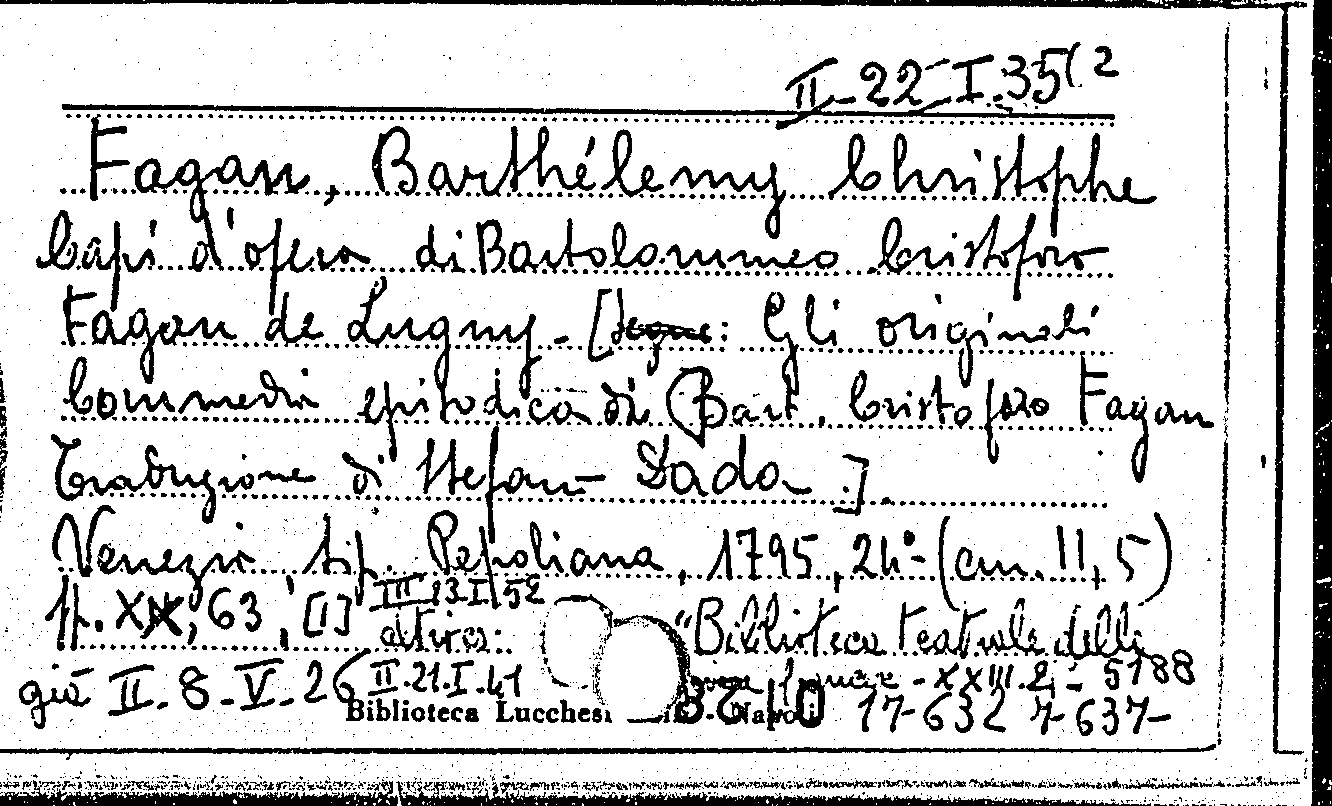 II-22-I.35(2
Fagan, Barthélemy Christophe
Capi d'opera di Bartolommeo Cristoforo
Fagan de Lugny - [segue: Gli originali
Commedia episodica di Bart. Cristoforo Fagan
Traduzione di Stefano Sada .].
Venezia, tip. Pepoliana, 1795, 24°- (cm. 11,5)
pp. XIX, 63, [1] III 13.I.52
altra: "Biblioteca teatrale della
già II-8-V-26 II.21.I.41 - XXIII.2, - 5188
Biblioteca Lucchesi 17-632 7-637-